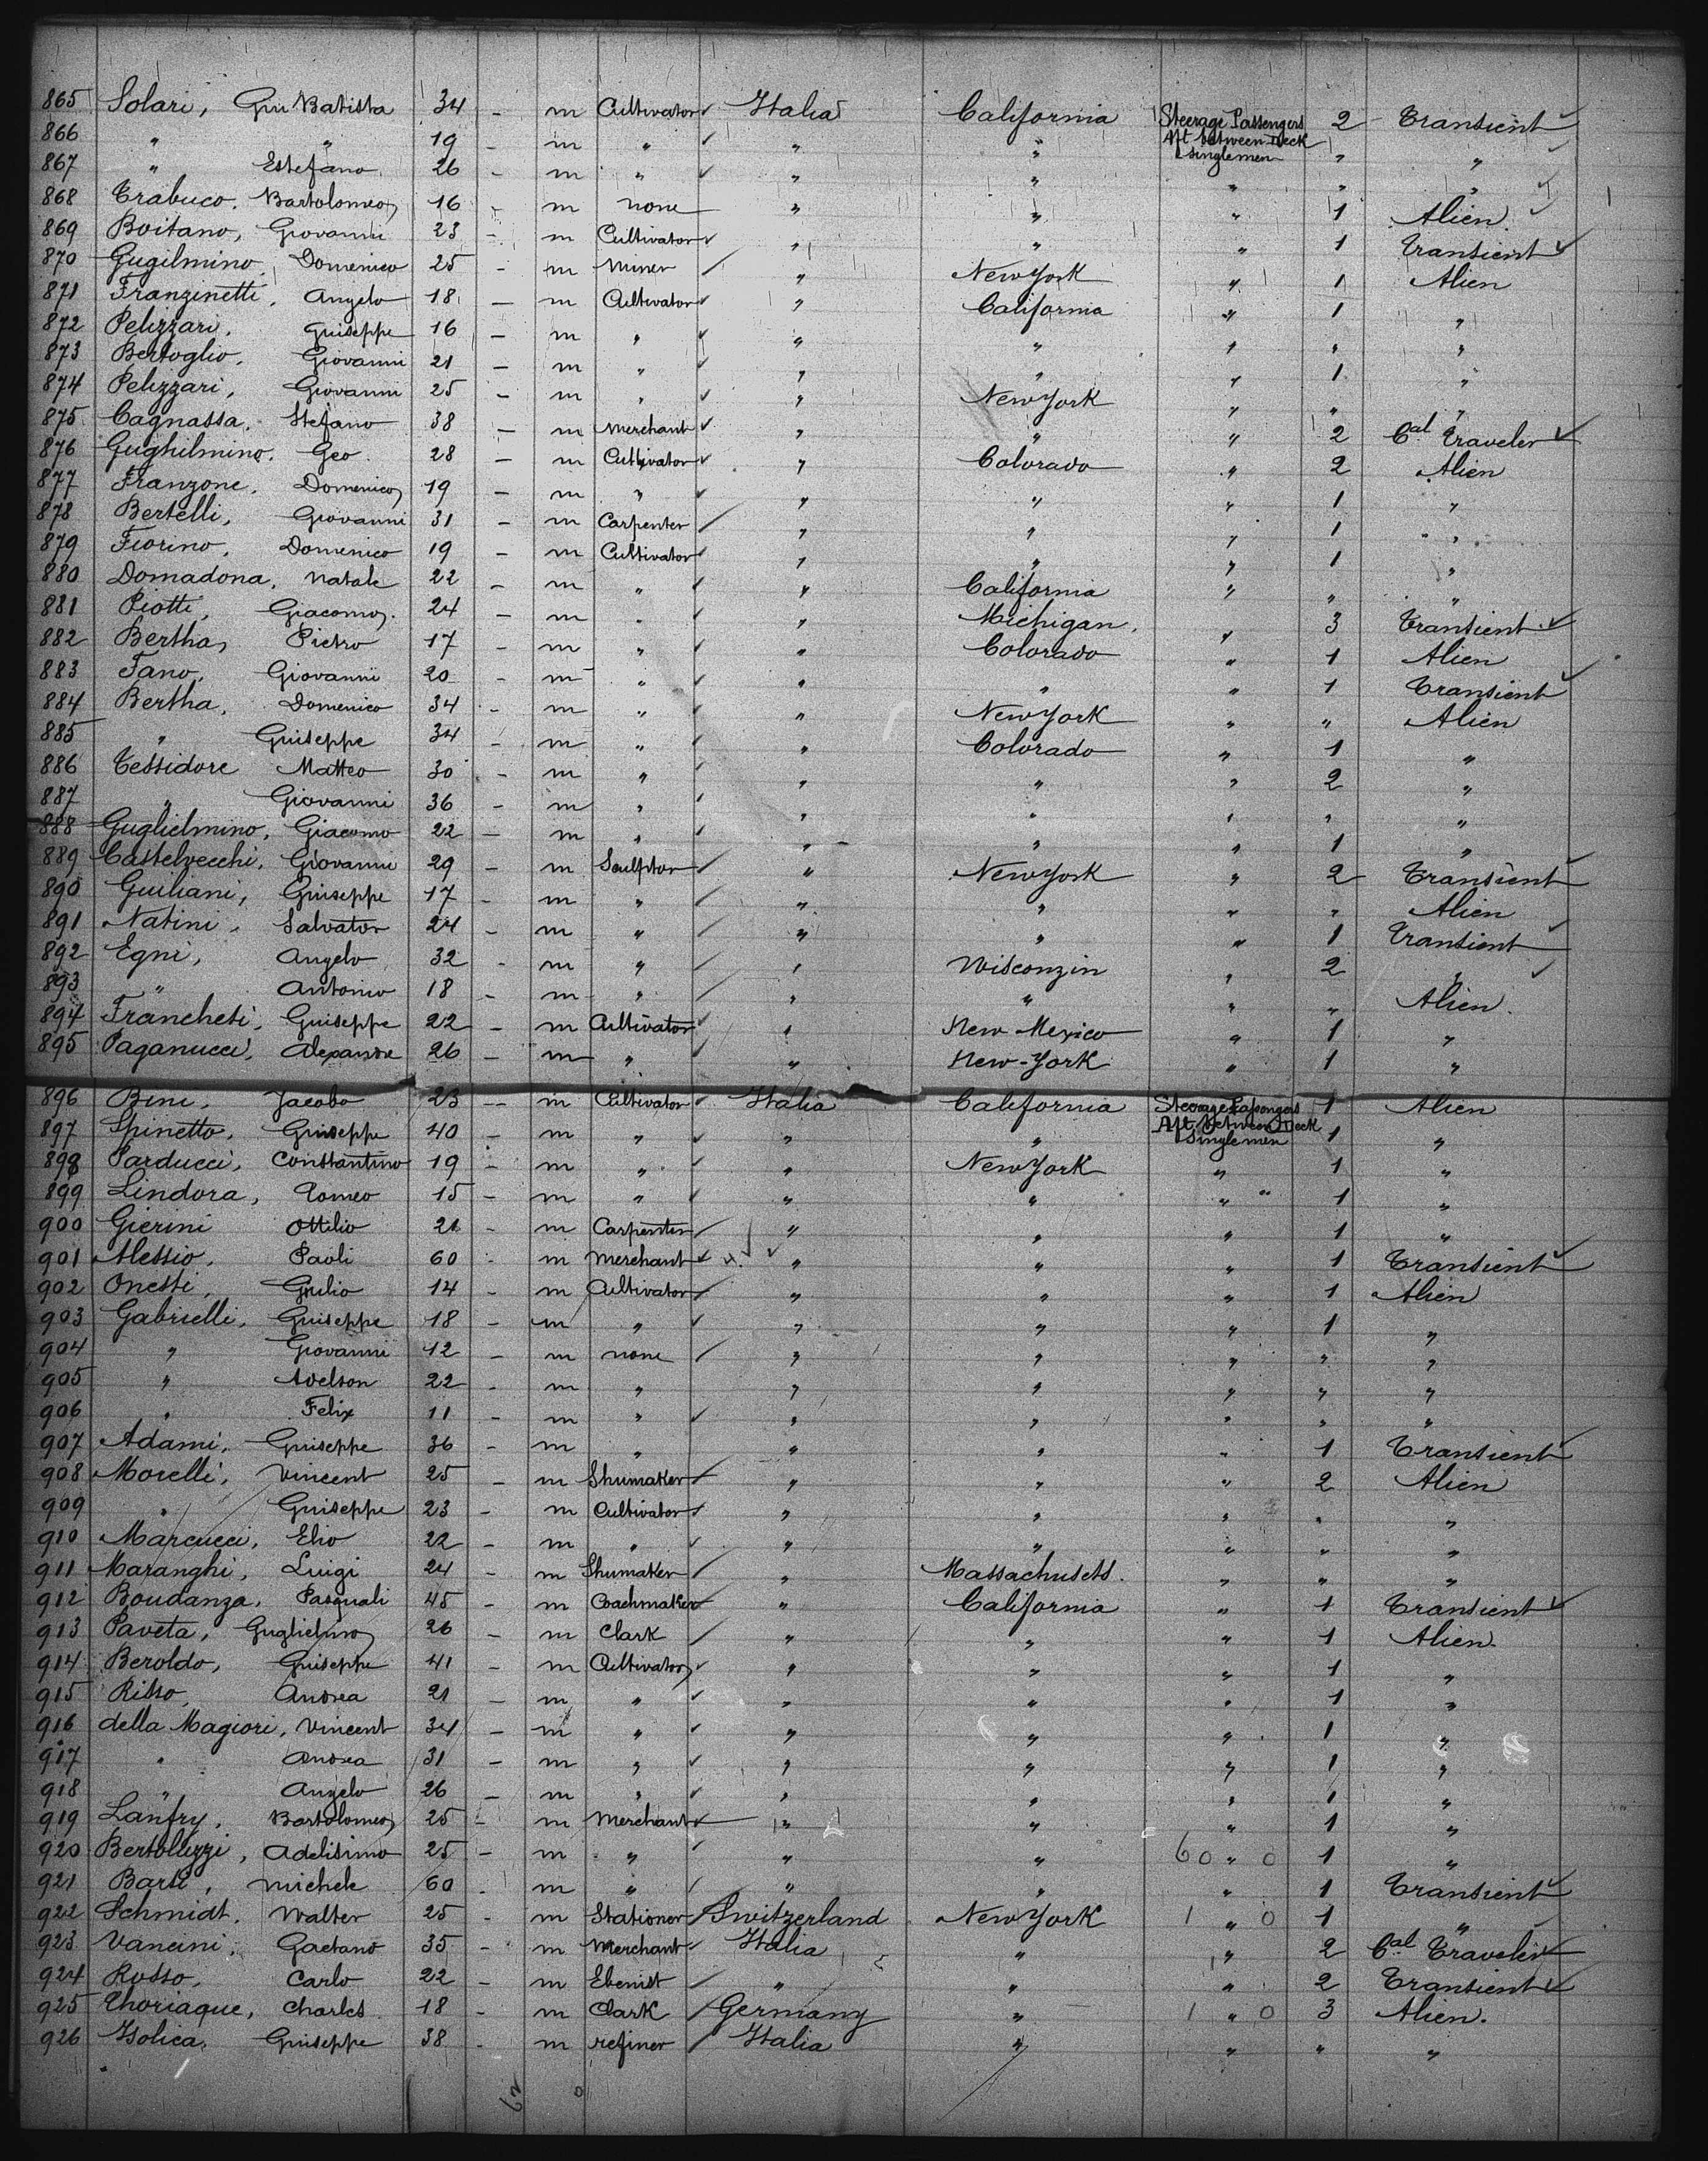 865 Solari, Giu Batista 34 - m Cultivator Italia California Steerage Passengers Aft between Deck singlemen 2 Transient
866 " " 19 - m " " " " "
867 " Estefano 26 - m " " " " " "
868 Trabuco, Bartolomeo 16 - m none " " " 1 Alien
869 Boitano, Giovanni 23 - m Cultivator " " " 1 Transient
870 Gugilmino, Domenico 25 - m Miner " New York " 1 Alien
871 Franzinetti, Angelo 18 - m Cultivator " California " 1 "
872 Pelizzari, Guiseppe 16 - m " " " " " "
873 Bertoglio, Giovanni 21 - m " " " " 1 "
874 Pelizzari, Giovanni 25 - m " " New York " " "
875 Cagnassa, Stefano 38 - m Merchant " " " 2 Cal Traveler
876 Gughilmino, Geo 28 - m Cultivator " Colorado " 2 Alien
877 Franzone, Domenico 19 - m " " " " 1 "
878 Bertelli, Giovanni 31 - m Carpenter " " " 1 "
879 Fiorino, Domenico 19 - m Cultivator " " " 1 "
880 Domadona, Natale 22 - m " " California " " "
881 Piotti, Giacomo. 24 - m " " Michigan, " 3 Transient
882 Bertha, Pietro 17 - m " " Colorado " 1 Alien
883 Fano, Giovanni 20 - m " " " " 1 Transient
884 Bertha, Domenico 34 - m " " New York " " Alien
885 " Guiseppe 34 - m " " Colorado " 1 "
886 Tessidore Matteo 30 - m " " " " 2 "
887 " Giovanni 36 - m " " " " " "
888 Guglielmino, Giacomo 22 - m " " " " 1 "
889 Castelvecchi, Giovanni 29 - m Sculptor " New York " 2 Transient
890 Guiliani, Guiseppe 17 - m " " " " " Alien
891 Natini, Salvator 24 - m " " " " 1 Transient
892 Egni, Angelo 32 - m " " Wisconzin " 2 "
893 " Antonio 18 - m " " " " " Alien.
894 Francheti, Guiseppe 22 - m Cultivator " New Mexico " 1 "
895 Paganucci, Alexandre 26 - m " " New-York " 1 "
896 Bini, Jacobo 23 - m Cultivator Italia California Steerage Pasengers Aft. between Deck Singlemen 1 Alien
897 Spinetto, Guiseppe 40 - m " " " 1 "
898 Parducci, Constantino 19 - m " " New York " 1 "
899 Lindora, Romeo 15 - m " " " " " 1 "
900 Gierini Ottilio 21 - m Carpenter " " " 1 "
901 Alessio, Paoli 60 - m Merchant " " " 1 Transient
902 Onesti, Giulio 14 - m Cultivator " " " 1 Alien
903 Gabrielli, Guiseppe 18 - m " " " " 1 "
904 " Giovanni 12 - m none " " " " "
905 " Adelson 22 - m " " " " " "
906 " Felix 11 - m " " " " " "
907 Adami, Guiseppe 36 - m " " " " 1 Transient
908 Morelli, Vincent 25 - m Shumaker " " " 2 Alien
909 " Guiseppe 23 - m Cultivator " " " " "
910 Marcucci, Elio 22 - m " " " " " "
911 Maranghi, Luigi 24 - m Shumaker " Massachusets. " " "
912 Boudanza, Pasquali 45 - m Coachmaker " California " 1 Transient
913 Paveta, Guglielmo 26 - m Clark " " " 1 Alien.
914 Beroldo, Guiseppe 41 - m Cultivator " " " 1 "
915 Risso, Andrea 21 - m " " " " 1 "
916 della Magiori, Vincent 34 - m " " " " 1 "
917 " Andrea 31 - m " " " " 1 "
918 " Angelo 26 - m " " " " 1 "
919 Lanfry, Bartolomeo 25 - m Merchant " " " 1 "
920 Bertollizzi, Adelisimo 25 - m " " " 60 " 0 1 "
921 Barsi, Michele 60 - m " " " " 1 Transient
922 Schmidt, Walter 25 - m Stationer Switzerland New York 1 " 0 1 "
923 Vancini, Gaetano 35 - m Merchant Italia " " 2 Cal Traveler
924 Russo, Carlo 22 - m Ebenist " " " 2 Transient
925 Thoriaque, Charles 18 - m Clark Germany " 1 " 0 3 Alien.
926 Isolica, Guiseppe 38 - m refiner Italia " " " "
62 0